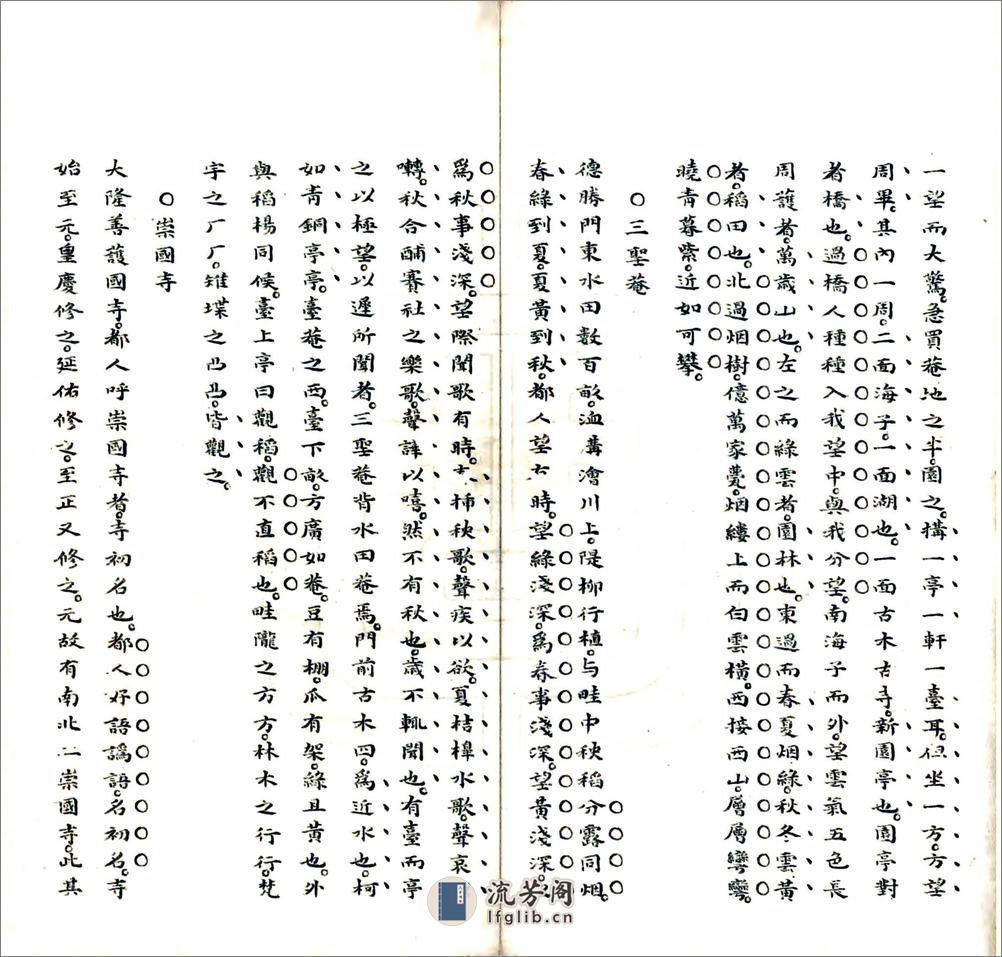 一望而大驚。急買菴地之半。園之。構一亭一軒一臺耳。但坐一方。方望
周畢。其內一周。二面海子。一面湖也。一面古木古寺。新園亭也。園亭對
者橋也。過橋人種種入我望中。與我分望。南海子而外。望雲氣五色。長
周護者。萬歲山也。左之而綠雲者。園林也。東過而春夏烟綠。秋冬雲黃
者。稻田也。北過烟樹。億萬家甍。烟縷上而白雲橫。西接西山。層層彎彎。
曉青暮紫。近如可攀。
○三聖菴
德勝門東水田數百畝。洫溝澮川上。隄柳行植。与畦中秧稻分露同烟。
春綠到夏。夏黃到秋。都人望有時。望綠淺深。爲春事淺深。望黃淺深。又
爲秋事淺深。望際聞歌有時。春插秧歌。聲疾以欲。夏桔槔水歌。聲哀以
囀。秋合酺賽社之樂歌。聲譁以嘻。然不有秋也。歲不輒聞也。有臺而亭
之。以極望。以遲所聞者。三聖菴背水田菴焉。門前古木四。爲近水也。柯
如青銅亭亭。臺菴之西。臺下畝。方廣如菴。豆有棚。瓜有架。綠且黃也。外
與稻楊同候。臺上亭曰觀稻。觀不直稻也。畦隴之方方。林木之行行。梵
宇之厂厂。雉堞之凸凸。皆觀之。
○崇國寺
大隆善護國寺。都人呼崇國寺者。寺初名也。都人好語譌語。名初名。寺
始至元。皇慶修之。延佑修之。至正又修之。元故有南北二崇國寺。此其
流芳阁
lfglib.cn